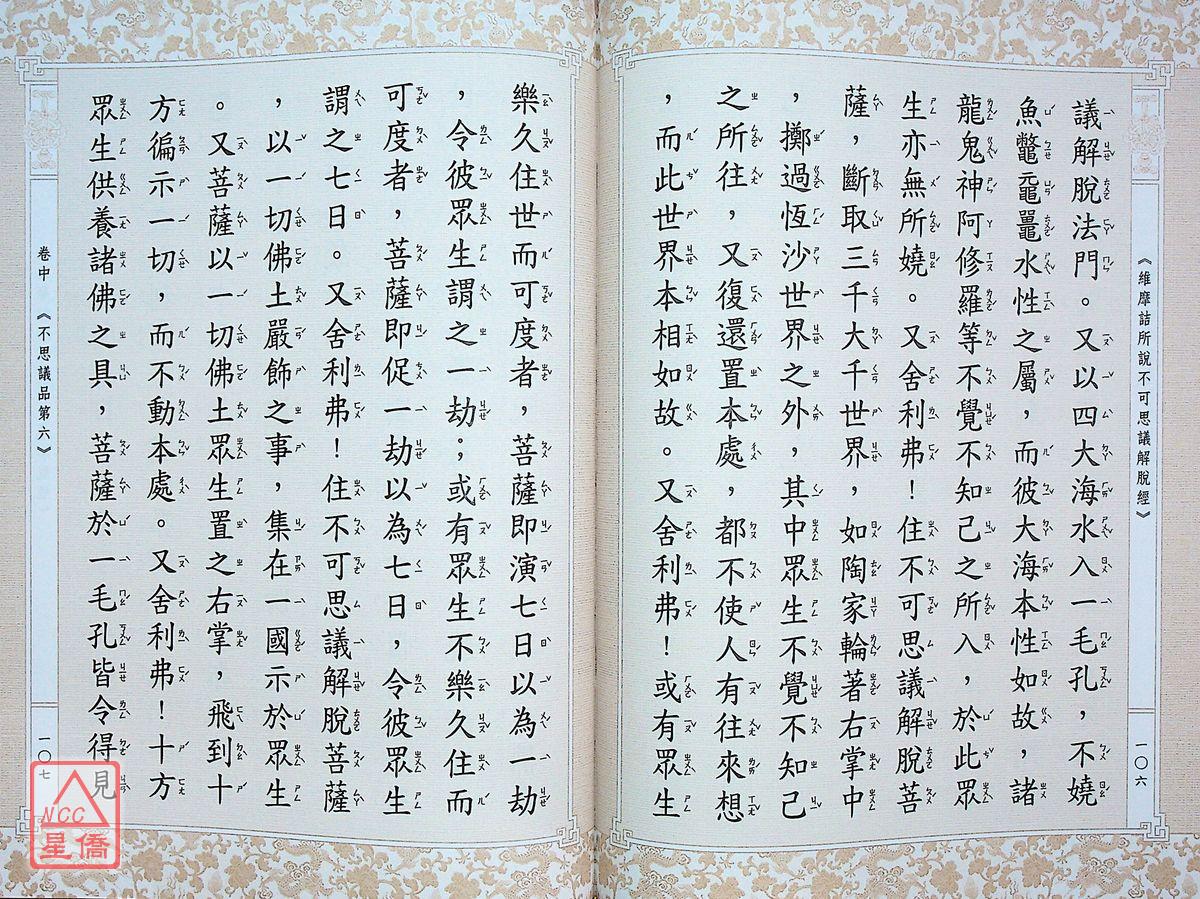 《維摩詰所說不可思議解脫經》
一○六
議解脫法門。又以四大海水入一毛孔，不嬈
魚鼈黿鼉水性之屬，而彼大海本性如故，諸
龍鬼神阿修羅等不覺不知己之所入，於此眾
生亦無所嬈。又舍利弗！住不可思議解脫菩
薩，斷取三千大千世界，如陶家輪著右掌中
，擲過恆沙世界之外，其中眾生不覺不知己
之所往，又復還置本處，都不使人有往來想
，而此世界本相如故。又舍利弗！或有眾生
樂久住世而可度者，菩薩即演七日以為一劫
，令彼眾生謂之一劫；或有眾生不樂久住而
可度者，菩薩即促一劫以為七日，令彼眾生
謂之七日。又舍利弗！住不可思議解脫菩薩
，以一切佛土嚴飾之事，集在一國示於眾生
。又菩薩以一切佛土眾生置之右掌，飛到十
方徧示一切，而不動本處。又舍利弗！十方
眾生供養諸佛之具，菩薩於一毛孔皆令得見
卷中 《不思議品第六》
一○七
NCC
星僑